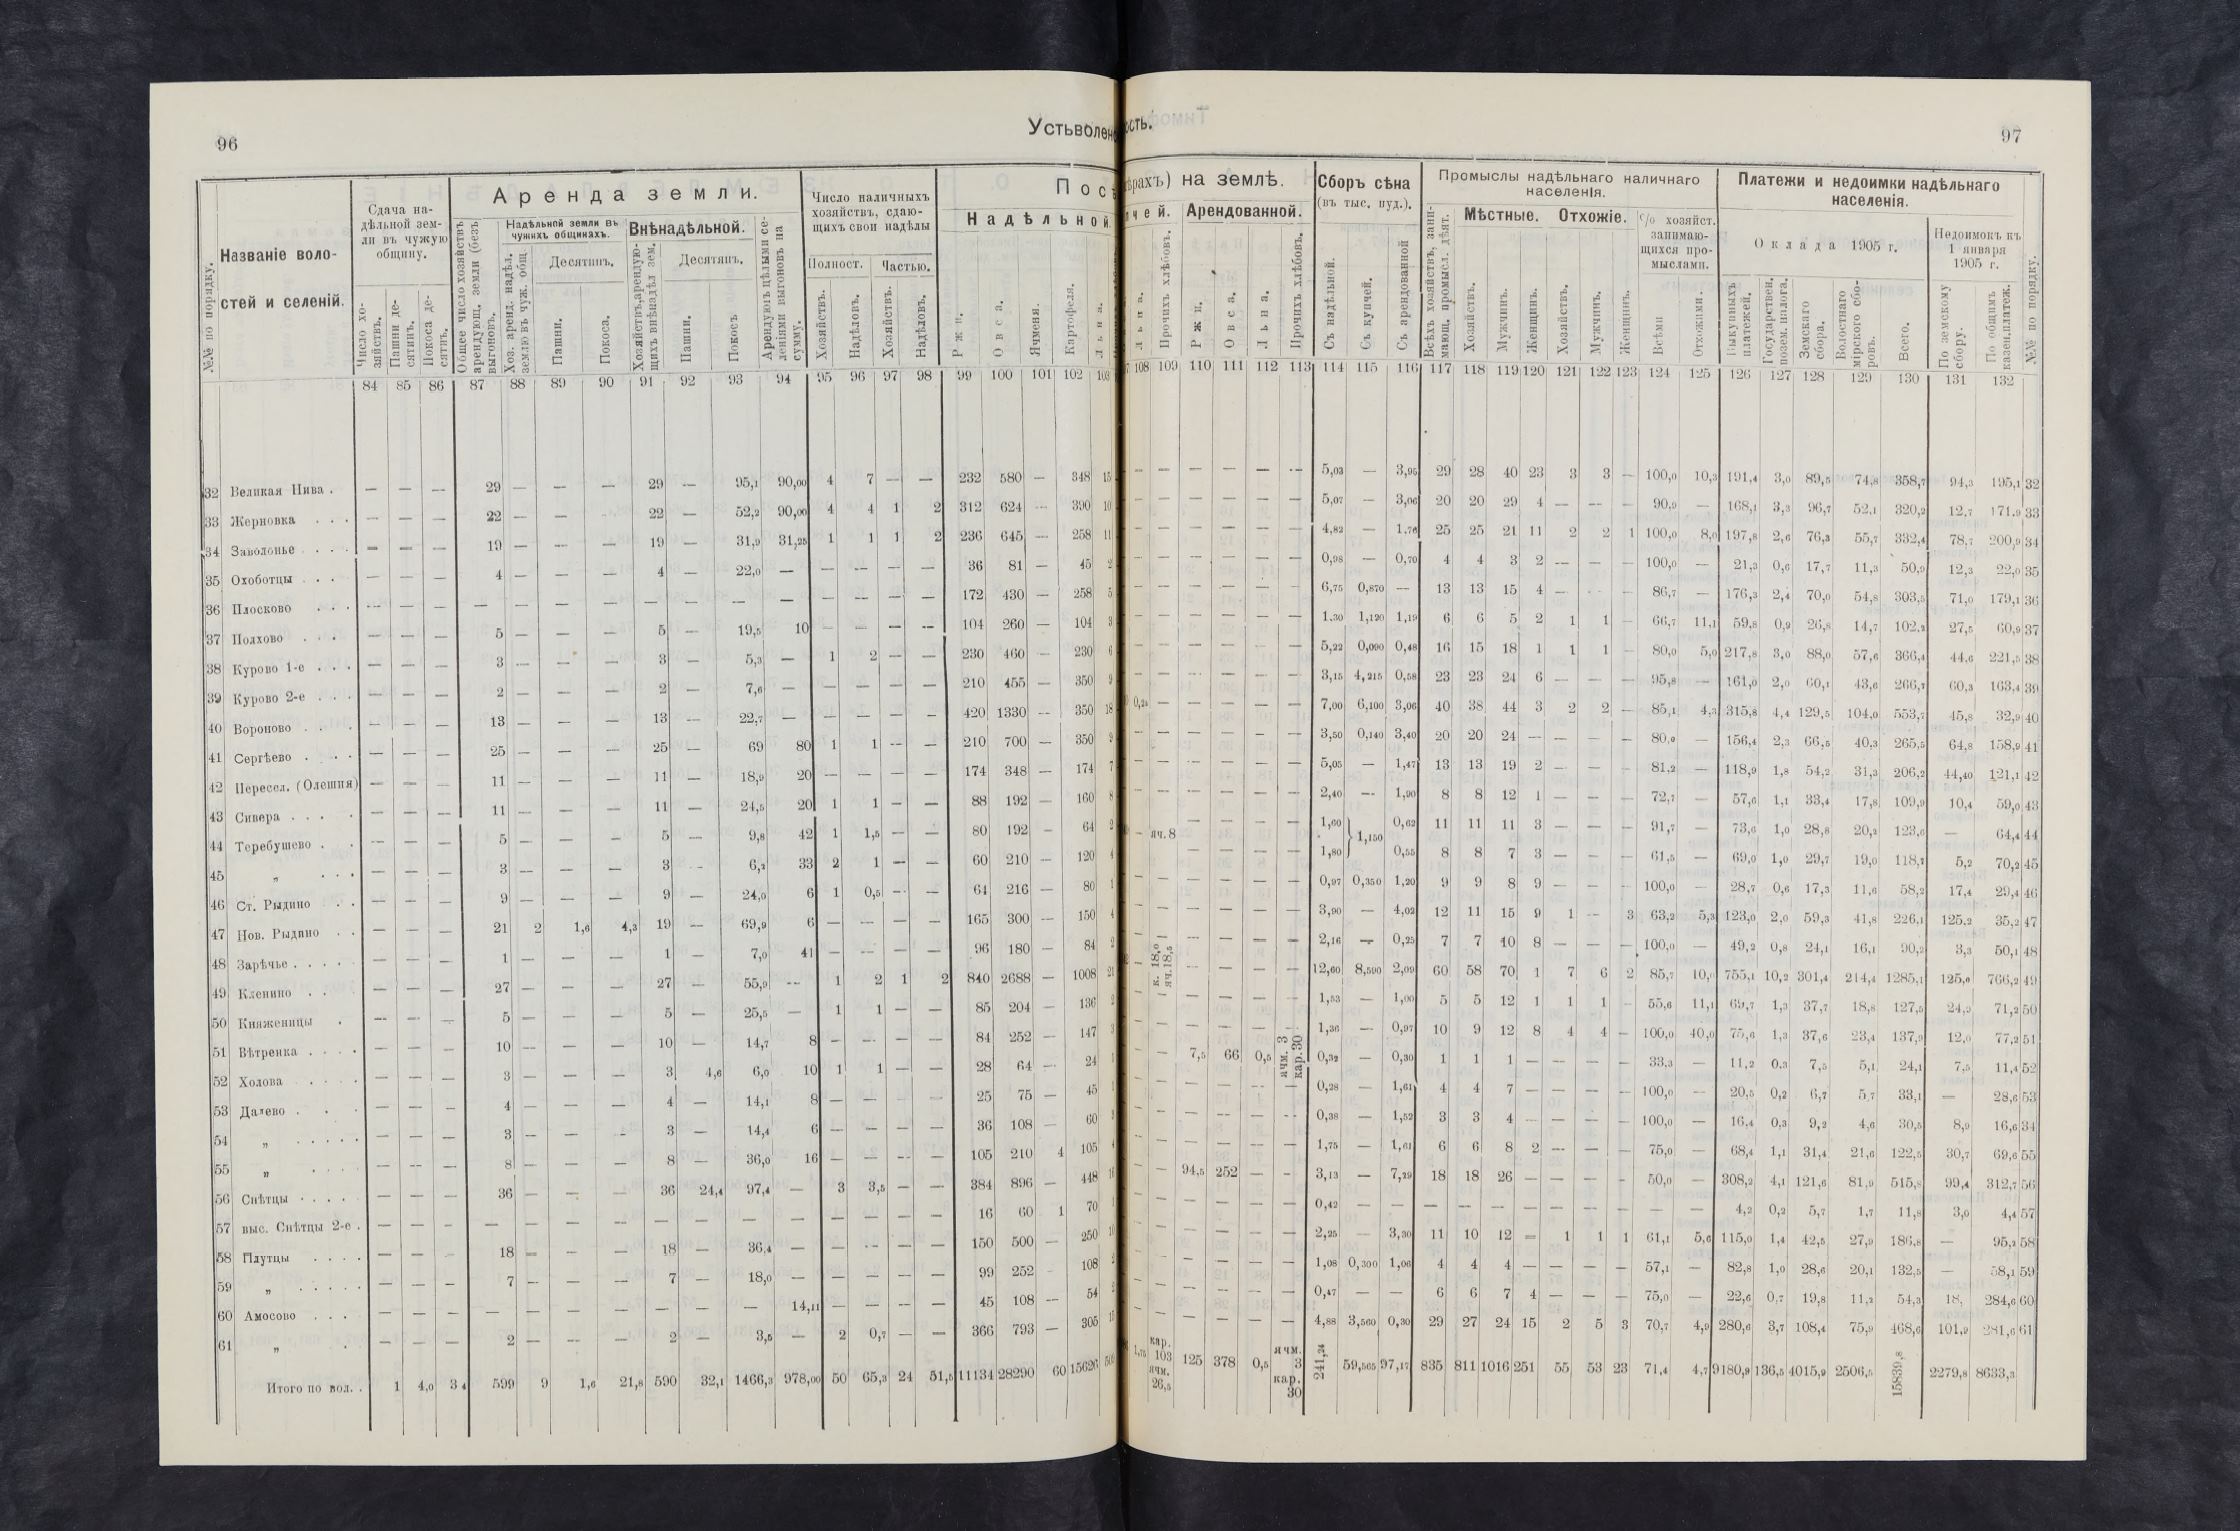 96
Устьволенс
ость.
97
№№ по порядку.
Названіе воло-
стей и селеній.
Сдача на-
дѣльной зем-
ли въ чужую
общину.
Число хо-
зяйствъ.
Пашни де-
сятинъ.
Покоса де-
сятин.
Аренда земли.
Общее число хозяйствъ
арендующ. земли (безъ
выгоновъ.
Надѣльной земли въ
чужихъ общинахъ.
Хоз. аренд. надѣл.
землю въ чуж. общ.
Десятинъ.
Пашни.
Покоса.
Внѣнадѣльной.
Хозяйствъ, арендую-
щихъ внѣнадѣл зем.
Десятинъ.
Пашни.
Покосъ
Арендуютъ цѣлыми се-
леніями выгоновъ на
сумму.
Число наличныхъ
хозяйствъ, сдаю-
щихъ свои надѣлы
Полност.
Частью.
Хозяйствъ.
Надѣловъ.
Хозяйствъ.
Надѣловъ.
Посѣ
Надѣльной.
Ржи.
Овса.
Ячменя.
Картофеля.
Льна.
ѣрахъ) на землѣ.
пчей.
Арендованной.
Льна.
Прочихъ хлѣбовъ.
Ржи.
Овса.
Льна.
Прочихъ хлѣбовъ.
Сборъ сѣна
(въ тыс. пуд.).
Съ надѣльной.
Съ купчей.
Съ арендованной
Промыслы надѣльнаго наличнаго
населенія.
Всѣхъ хозяйствъ, зани-
мающ. промысл. дѣят.
Мѣстные. Отхожіе.
Хозяйствъ.
Мужчинъ.
Женщинъ.
Хозяйствъ.
Мужчинъ.
Женщинъ.
% хозяйст.
занимаю-
щихся про-
мыслами.
Всѣми
Отхожими.
Платежи и недоимки надѣльнаго
населенія.
Оклада 1905 г.
Недоимокъ къ
1 января
1905 г.
Выкупныхъ
платежей.
Государствен.
позем. налога.
Земскаго
сбора.
Волостнаго
мірского сбо-
ровъ.
Всего.
По земскому
сбору.
По общимъ
казен.платеж.
№№ по порядку.
84 85 86 87 88 89 90 91 92 93 94 95 96 97 98 99 100 101 102 103
108 109 110 111 112 113 114 115 116 117 118 119 120 121 122 123 124 125 126 127 128 129 130 131 132
32 Великая Нива . — — — 29 — — — 29 — 95,1 90,00 4 7 — — 232 580 — 348 15 — — — — — — 5,03 — 3,95 29 28 40 23 3 3 — 100,0 10,3 191,4 3,0 89,5 74,8 358,7 94,3 195,1 32
33 Жерновка . . . — — — 22 — — — 22 — 52,2 90,00 4 4 1 2 312 624 — 390 10 — — — — — — 5,07 — 3,06 20 20 29 4 — — — 90,9 — 168,1 3,3 96,7 52,1 320,2 12,7 171,9 33
34 Заволонье . . . . — — — 19 — — — 19 — 31,9 31,25 1 1 1 2 236 645 — 258 11 — — — — — — 4,82 — 1,76 25 25 21 11 2 2 1 100,0 8,0 197,8 2,6 76,3 55,7 332,4 78,7 200,9 34
35 Охоботцы . . . — — — 4 — — — 4 — 22,0 — — — — — 36 81 — 45 2 — — — — — — 0,98 — 0,70 4 4 3 2 — — — 100,0 — 21,3 0,6 17,7 11,3 50,9 12,3 22,0 35
36 Плосково . . . — — — — — — — — — — — — — — — 172 430 — 258 5 — — — — — — 6,75 0,870 — 13 13 15 4 — — — 86,7 — 176,3 2,4 70,0 54,8 303,5 71,0 179,1 36
37 Полхово . . . — — — 5 — — — 5 — 19,5 10 — — — — 104 260 — 104 3 — — — — — — 1,30 1,120 1,19 6 6 5 2 1 1 — 66,7 11,1 59,8 0,9 26,8 14,7 102,2 27,5 60,9 37
38 Курово 1-е . . . — — — 3 — — — 3 — 5,3 — 1 2 — — 230 460 — 230 6 — — — — — — 5,22 0,090 0,48 16 15 18 1 1 1 — 80,0 5,0 217,8 3,0 88,0 57,6 366,4 44,6 221,5 38
39 Курово 2-е . . . — — — 2 — — — 2 — 7,6 — — — — — 210 455 — 350 9 — — — — — — 3,15 4,215 0,58 23 23 24 6 — — — 95,8 — 161,0 2,0 60,1 43,6 266,7 60,3 163,4 39
40 Вороново . . . — — — 13 — — — 13 — 22,7 — — — — — 420 1330 — 350 18 — — — — — 7,00 6,100 3,06 40 38 44 3 2 2 — 85,1 4,3 315,8 4,4 129,5 104,0 553,7 45,8 32,9 40
41 Сергѣево . . . — — — 25 — — — 25 — 69 80 1 1 — — 210 700 — 350 9 — — — — — — 3,50 0,140 3,40 20 20 24 — — — — 80,0 — 156,4 2,3 66,5 40,3 265,5 64,8 158,9 41
42 Пересел. (Олешня) — — — 11 — — — 11 — 18,9 20 — — — — 174 348 — 174 7 — — — — — — 5,05 — 1,47 13 13 19 2 — — — 81,2 — 118,9 1,8 54,2 31,3 206,2 44,40 121,1 42
43 Сивера . . . . — — — 11 — — — 11 — 24,5 20 1 1 — — 88 192 — 160 8 — — — — — — 2,40 — 1,90 8 8 12 1 — — — 72,7 — 57,6 1,1 33,4 17,8 109,9 10,4 59,0 43
44 Теребушево . . — — — 5 — — — 5 — 9,8 42 1 1,5 — — 80 192 — 64 2 — яч. 8 — — — — 1,60 1,150 0,62 11 11 11 3 — — — 91,7 — 73,6 1,0 28,8 20,2 123,6 — 64,4 44
45 „ . . . — — — 3 — — — 3 — 6,2 33 2 1 — — 60 210 — 120 4 — — — — 1,80 0,55 8 8 7 3 — — — 61,5 — 69,0 1,0 29,7 19,0 118,7 5,2 70,2 45
46 Ст. Рыдино . . — — — 9 — — — 9 — 24,0 6 1 0,5 — — 64 216 — 80 1 — — — — — — 0,97 0,350 1,20 9 9 8 9 — — — 100,0 — 28,7 0,6 17,3 11,6 58,2 17,4 29,4 46
47 Нов. Рыдино . . — — — 21 2 1,6 4,3 19 — 69,9 6 — — — — 165 300 — 150 4 — — — — — — 3,90 — 4,02 12 11 15 9 1 — 3 63,2 5,3 123,0 2,0 59,3 41,8 226,1 125,2 35,2 47
48 Зарѣчье . . . . — — — 1 — — — 1 — 7,0 41 — — — — 96 180 — 84 2 — — — — 2,16 — 0,25 7 7 10 8 — — — 100,0 — 49,2 0,8 24,1 16,1 90,2 3,3 50,1 48
49 Кленино . . — — — 27 — — — 27 — 55,9 — 1 2 1 2 840 2688 — 1008 21 — к. 18,0 яч.18,5 — — — — 12,60 8,590 2,09 60 58 70 1 7 6 2 85,7 10,0 755,1 10,2 301,4 214,4 1285,1 125,0 766,2 49
50 Княженицы . — — — 5 — — — 5 — 25,5 — 1 1 — — 85 204 — 136 2 — — — — — — 1,53 — 1,00 5 5 12 1 1 1 — 55,6 11,1 69,7 1,3 37,7 18,8 127,5 24,9 71,2 50
51 Вѣтренка . . . . — — — 10 — — — 10 — 14,7 8 — — — — 84 252 — 147 3 — — — — — — 1,36 — 0,97 10 9 12 8 4 4 — 100,0 40,0 75,6 1,3 37,6 23,4 137,9 12,0 77,2 51
52 Холова . . . . . — — — 3 — — — 3 4,6 6,0 10 1 1 — — 28 64 — 24 1 — — 7,5 66 0,5 ячм. 3 кар.30 0,32 — 0,30 1 1 1 — — — — 33,3 — 11,2 0,3 7,5 5,1 24,1 7,5 11,4 52
53 Далево . . . — — — 4 — — — 4 — 14,1 8 — — — — 25 75 — 45 1 — — — — — — 0,28 — 1,61 4 4 7 — — — — 100,0 — 20,5 0,2 6,7 5,7 33,1 — 28,6 53
54 „ . . . . . — — — 3 — — — 3 — 14,4 6 — — — — 36 108 — 60 3 — — — — — — 0,38 — 1,52 3 3 4 — — — — 100,0 — 16,4 0,3 9,2 4,6 30,5 8,9 16,6 34
55 „ . . . . — — — 8 — — — 8 — 36,0 16 — — — — 105 210 4 105 4 — — — — — — 1,75 — 1,61 6 6 8 2 — — — 75,0 — 68,4 1,1 31,4 21,6 122,5 30,7 69,6 55
56 Снѣтцы . . . . . — — — 36 — — — 36 24,4 97,4 — 3 3,5 — — 384 896 — 448 16 — — 94,5 252 — — 3,13 — 7,29 18 18 26 — — — — 50,0 — 308,2 4,1 121,6 81,9 515,8 99,4 312,7 56
57 выс. Снѣтцы 2-е . — — — — — — — — — — — — — — — 16 60 1 70 1 — — — — — — 0,42 — — — — — — — — — — — 4,2 0,2 5,7 1,7 11,8 3,0 4,4 57
58 Плутцы . . . . — — — 18 — — — 18 — 36,4 — — — — — 150 500 — 250 10 — — — — — — 2,25 — 3,30 11 10 12 — 1 1 1 61,1 5,6 115,0 1,4 42,5 27,9 186,8 — 95,2 58
59 „ . . . . . — — — 7 — — — 7 — 18,0 — — — — — 99 252 — 108 2 — — — — — — 1,08 0,300 1,06 4 4 4 — — — — 57,1 — 82,8 1,0 28,6 20,1 132,5 — 58,1 59
60 Амосово . . . — — — — — — — — — — 14,11 — — — — 45 108 — 54 2 — — — — — — 0,47 — — 6 6 7 4 — — — 75,0 — 22,6 0,7 19,8 11,2 54,3 18, 284,6 60
61 „ . — — — 2 — — — 2 — 3,5 — 2 0,7 — — 366 793 — 305 15 — — — — — — 4,88 3,560 0,30 29 27 24 15 2 5 3 70,7 4,9 280,6 3,7 108,4 75,9 468,6 101,9 281,6 61
Итого по вол. . 1 4,0 3 4 599 9 1,6 21,8 590 32,1 1466,3 978,00 50 65,3 24 51,5 11134 28290 60 15626 1,75 кар. 103 ячм. 26,5 125 378 0,5 ячм. 3 кар. 30 241,24 59,565 97,17 835 811 1016 251 55 53 23 71,4 4,7 9180,9 136,5 4015,9 2506,5 15839,8 2279,8 8633,3